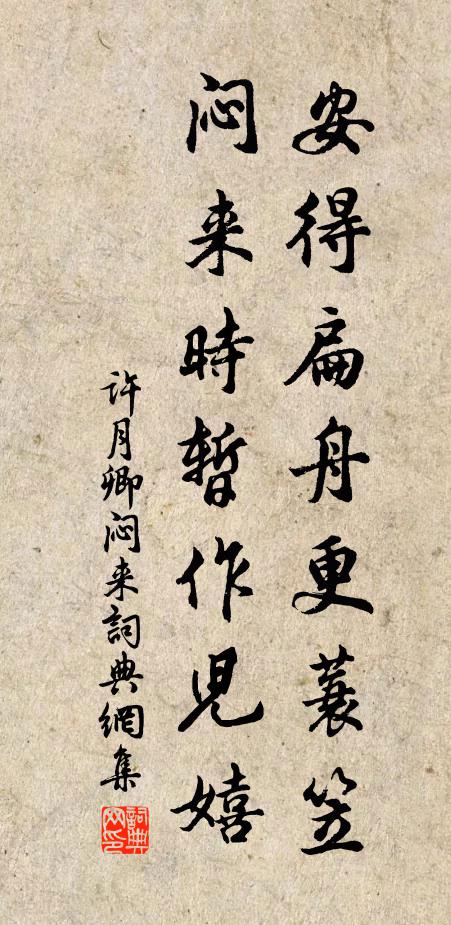 安得扁舟更蓑笠
闷来時暫作児嬉
许月卿闷来詞典網集
詞典網印